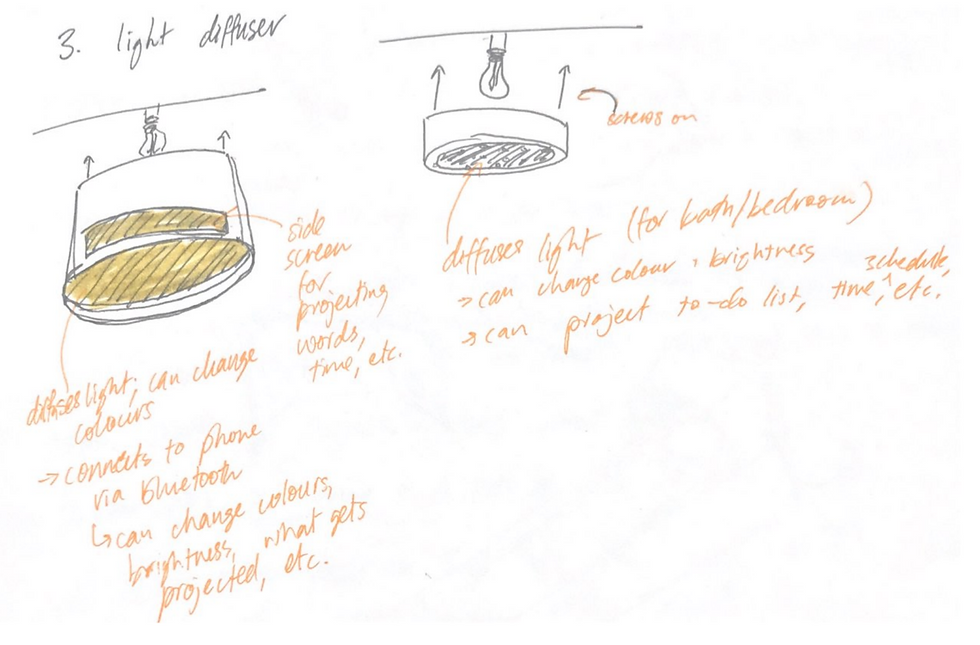 3. light diffuser
screws on
side
screen
for
projecting
words,
time, etc.
diffuses light; can change
colours
→ connects to phone
via bluetooth
↳ can change colours,
brightness, what gets
projected, etc.
diffuses light (for bath/bedroom)
→ can change colour + brightness
→ can project to-do list, time, schedule, etc.